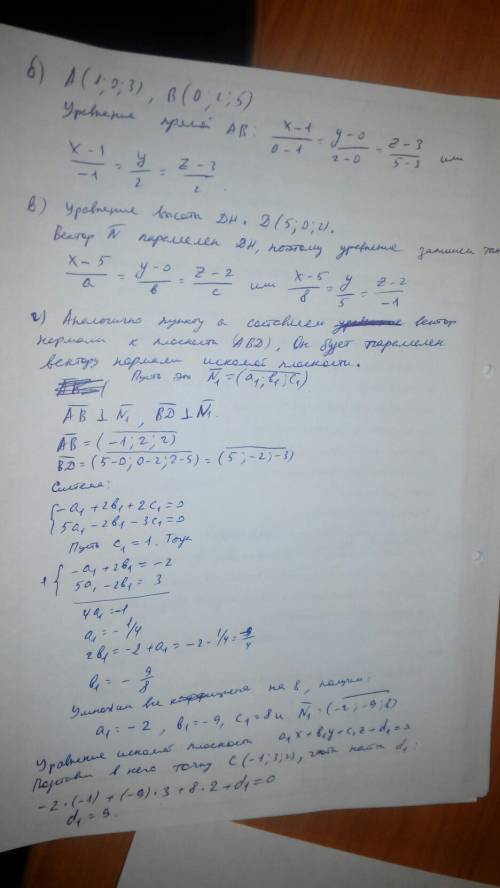 б) A(1;0;3), B(0;2;5)
Уравнение прямой AB: (x-1)/(0-1) = (y-0)/(2-0) = (z-3)/(5-3) или
(x-1)/(-1) = y/2 = (z-3)/2
в) Уравнение высоты DH. D(5;0;2).
Вектор N̅ параллелен DH, поэтому уравнение запишем так
(x-5)/a = (y-0)/b = (z-2)/c или (x-5)/8 = y/5 = (z-2)/(-1)
г) Аналогично пункту а составляем вектор
нормали к плоскости (ABD). Он будет параллелен
вектору нормали искомой плоскости.
Пусть это N̅₁=(a₁;b₁;c₁)
A̅B̅ ⊥ N̅₁, B̅D̅ ⊥ N̅₁.
A̅B̅ = (-1;2;2)
B̅D̅ = (5-0;0-2;2-5) = (5;-2;-3)
Система:
{-a₁+2b₁+2c₁=0
5a₁-2b₁-3c₁=0
Пусть c₁=1. Тогда
+ {-a₁+2b₁=-2
5a₁-2b₁=3
4a₁=1
a₁=-1/4
2b₁=-2+a₁=-2-1/4=-9/4
b₁=-9/8
Умножим все коэффициенты на 8, получим:
a₁=-2, b₁=-9, c₁=8 и N̅₁=(-2;-9;8)
Уравнение искомой плоскости a₁x+b₁y+c₁z+d₁=0
в него точку C(-1;3;2), чтоб найти d₁:
-2·(-1)+(-9)·3+8·2+d₁=0
d₁=9.